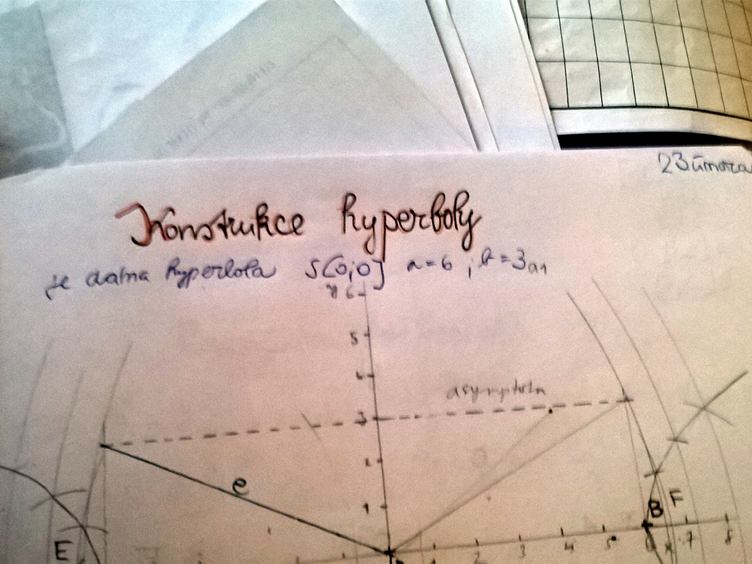 23 února
Konstrukce hyperboly
je dána hyperbola S[0;0] a=6 ; b=3
y 6
5
4
asymptota
3
2
e
1
B F
E
1 2 3 4 5 6 7 8